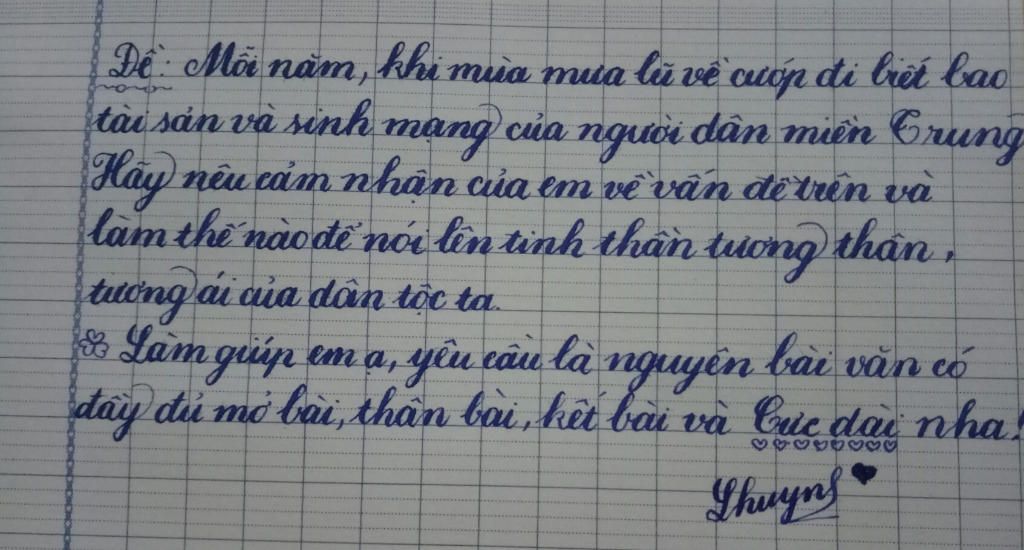 Đề: Mỗi năm, khi mùa mưa lũ về cướp đi biết bao
tài sản và sinh mạng của người dân miền Trung
Hãy nêu cảm nhận của em về vấn đề trên và
làm thế nào để nói lên tinh thần tương thân,
tương ái của dân tộc ta.
Làm giúp em ạ, yêu cầu là nguyên bài văn có
đầy đủ mở bài, thân bài, kết bài và Cực dài nha!